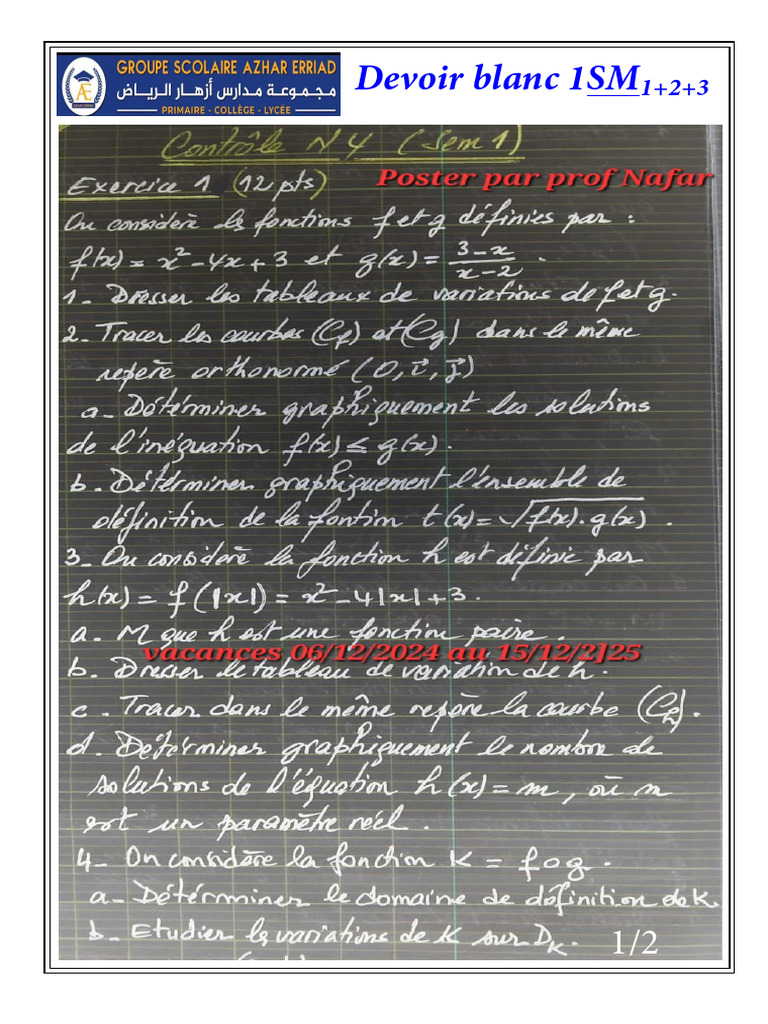 GROUPE SCOLAIRE AZHAR ERRIAD
مجموعة مدارس أزهار الرياض
PRIMAIRE - COLLÈGE - LYCÉE
Devoir blanc 1SM1+2+3
Contrôle N4 (Sem 1)
Exercice 1 (12 pts)
Poster par prof Nafar
On considère les fonctions f et g définies par :
f(x) = x² - 4x + 3 et g(x) = (3-x)/(x-2) .
1 - Dresser les tableaux de variations de f et g.
2. Tracer les courbes (Cf) et (Cg) dans le même
repère orthonormé (O, i⃗, j⃗)
a - Déterminer graphiquement les solutions
de l'inéquation f(x) ≤ g(x).
b. Déterminer graphiquement l'ensemble de
définition de la fontion t(x) = √(f(x).g(x)) .
3 - On considère la fonction h est définie par
h(x) = f(|x|) = x² - 4|x| + 3 .
a. M que h est une fonction paire .
vacances 06/12/2024 au 15/12/2J25
b. Dresser le tableau de variation de h.
c. Tracer dans le même repère la courbe (Ch).
d. Déterminer graphiquement le nombre de
solutions de l'équation h(x) = m , où m
est un paramètre réel .
4 - On considère la fonction K = fog .
a - Déterminer le domaine de définition de K.
b - Etudier les variations de K sur DK.
1/2